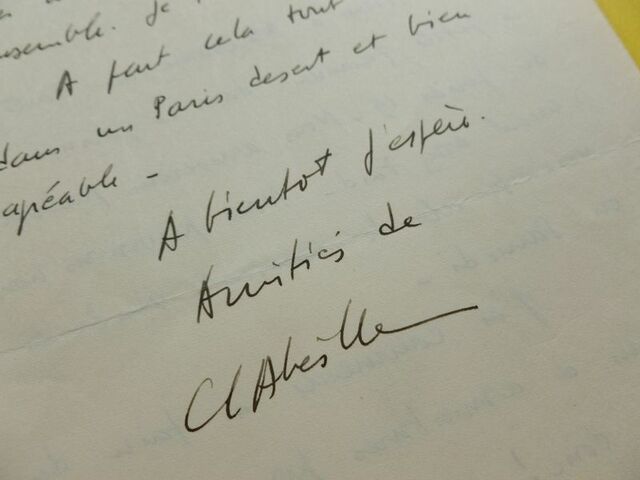 ensemble. Je
A part cela tout
dans un Paris desert et bien
agréable -
A bientot j'espère.
Amitiés de
Cl Abeille